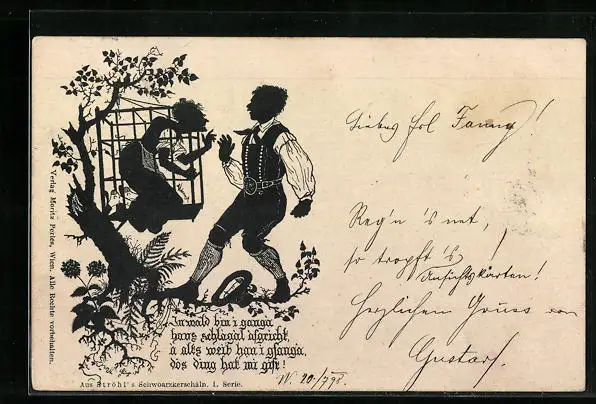 Verlag Moritz Perles, Wien. Alle Rechte vorbehalten.
In wald bin i ganga
hans schlagal afgricht,
a alts weib han i gfanga,
dös ding hat mi gift!
Aus Ströhl's Schwoarzkerschäln. 1. Serie.
W. 20./7 98.
Liebes Frl Fanny!
Reg'n 's net,
so tropft 's
Ansichtskarten!
Herzlichen Gruss von
Gustav.